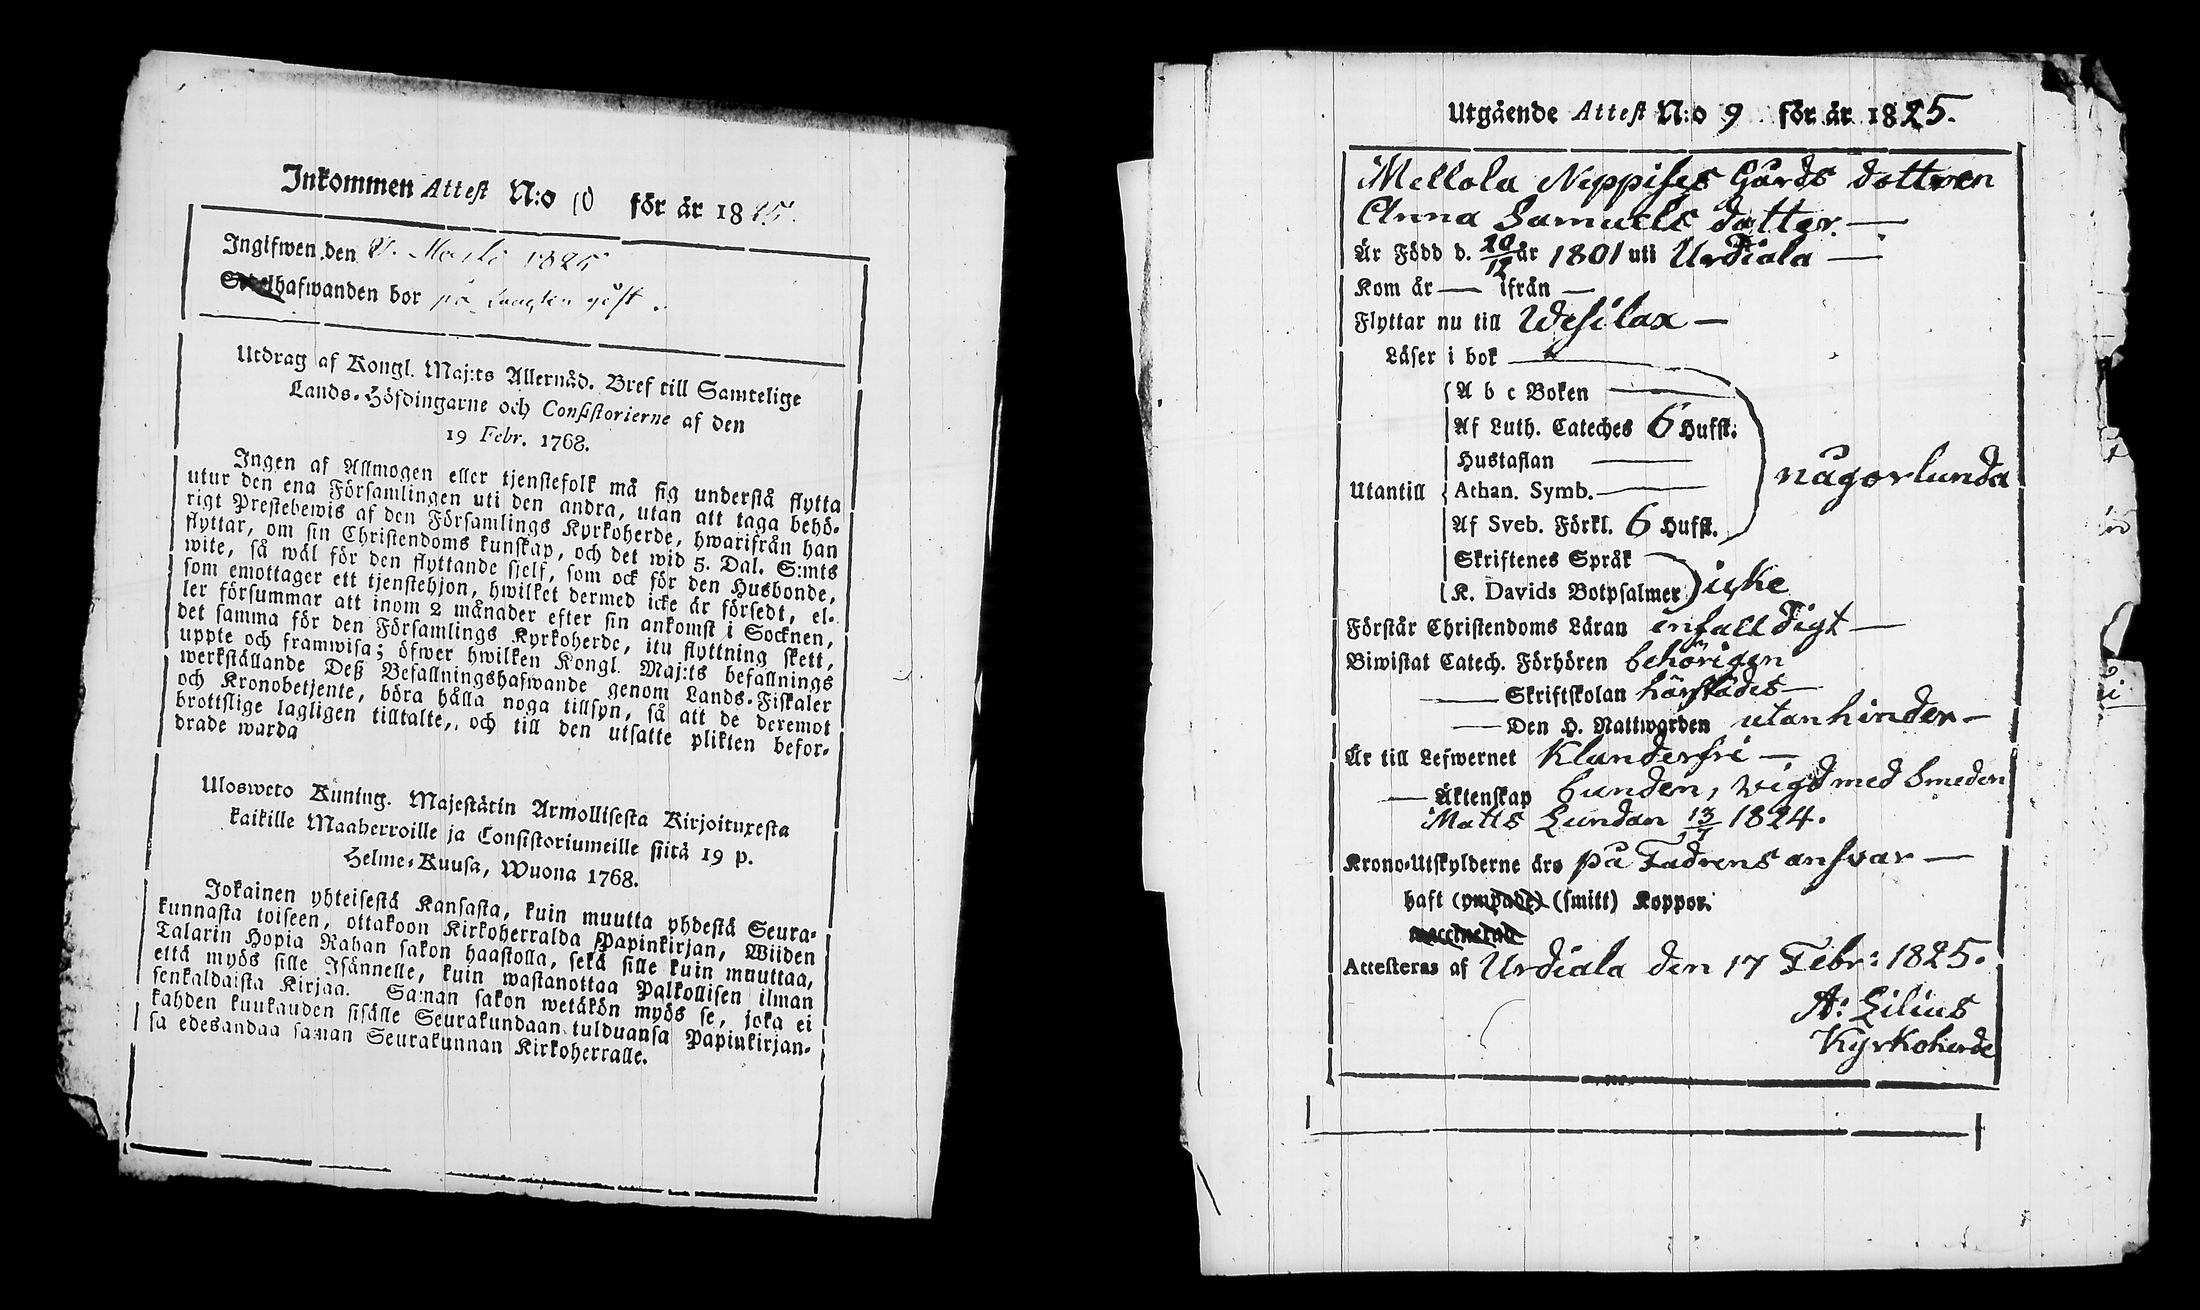 Inkommen Attest N:o 10 för år 1825.
Ingifwen den Martii 1825
hafwanden bor på
Utdrag af Kongl. Maj:ts Allernåd. Bref till Samtelige
Lands-Höfdingarne och Consistorierne af den
19 Febr. 1768.
Ingen af Allmogen eller tjenstefolk må sig understå flytta
utur den ena Församlingen uti den andra, utan att taga behö-
rigt Prestebewis af den Församlings Kyrkoherde, hwarifrån han
flyttar, om sin Christendoms kunskap, och det wid 5. Dal. S:mts
wite, så wäl för den flyttande sjelf, som ock för den Husbonde,
som emottager ett tjenstehjon, hwilket dermed icke är försedt, el-
ler försummar att inom 2 månader efter sin ankomst i Socknen,
det samma för den Församlings Kyrkoherde, itu flyttning skett,
uppte och framwisa; öfwer hwilken Kongl. Maj:ts befallnings
werkställande Deß Befallningshafwande genom Lands-Fiskaler
och Kronobetjente, böra hålla noga tillsyn, så att de deremot
brottslige lagligen tilltalte,, och till den utsatte plikten befor-
drade warda
Ulosweto Kuning. Majestätin Armollisesta Kirjoituxesta
kaikille Maaherroille ja Consistoriumeille siitä 19 p.
Helme-Kuusa, Wuona 1768.
Jokainen yhteisestä Kansasta, kuin muutta yhdestä Seura-
kunnasta toiseen, ottakoon Kirkoherralda Papinkirjan, Wiiden
Talarin Hopia Rahan sakon haastolla, sekä sille kuin muuttaa,
että myös sille Isännelle, kuin wastanottaa Palkollisen ilman
senkaldaista Kirjaa. Saman sakon wetäkön myös se, joka ei
kahden kuukauden sisälle Seurakundaan tulduansa Papinkirjan-
sa edesandaa saman Seurakunnan Kirkoherralle.
Utgående Attest N:o 9 för år 1825.
Mellola Neppises Gårds dottren
Anna Samuels dotter. —
Är Född d. 20/12 år 1801 uti Urdiala —
Kom år — ifrån —
Flyttar nu till Wesilax —
Läser i bok —
A b c Boken —
Af Luth. Cateches 6 Hufst.
Hustaflan —
någorlunda
Utantill Athan. Symb. —
Af Sveb. Förkl. 6 Hufst.
Skriftenes Språk
K. Davids Botpsalmer icke
Förstår Christendoms Läran enfalldigt —
Biwistat Catech. Förhören behörigen
— Skriftskolan härstädes —
— Den H. Nattwarden utan hinder —
Är till Lefwernet Klanderfri —
— Äktenskap bunden, wigd med Smeden
Matts Lundan 13/7 1824.
Krono-Utskylderne äro på Fadrens answar —
haft (ympade) (smitt) Koppor.
vaccinerad
Attesteras af Urdiala den 17 Febr: 1825.
A: Lilius
Kyrkoherde